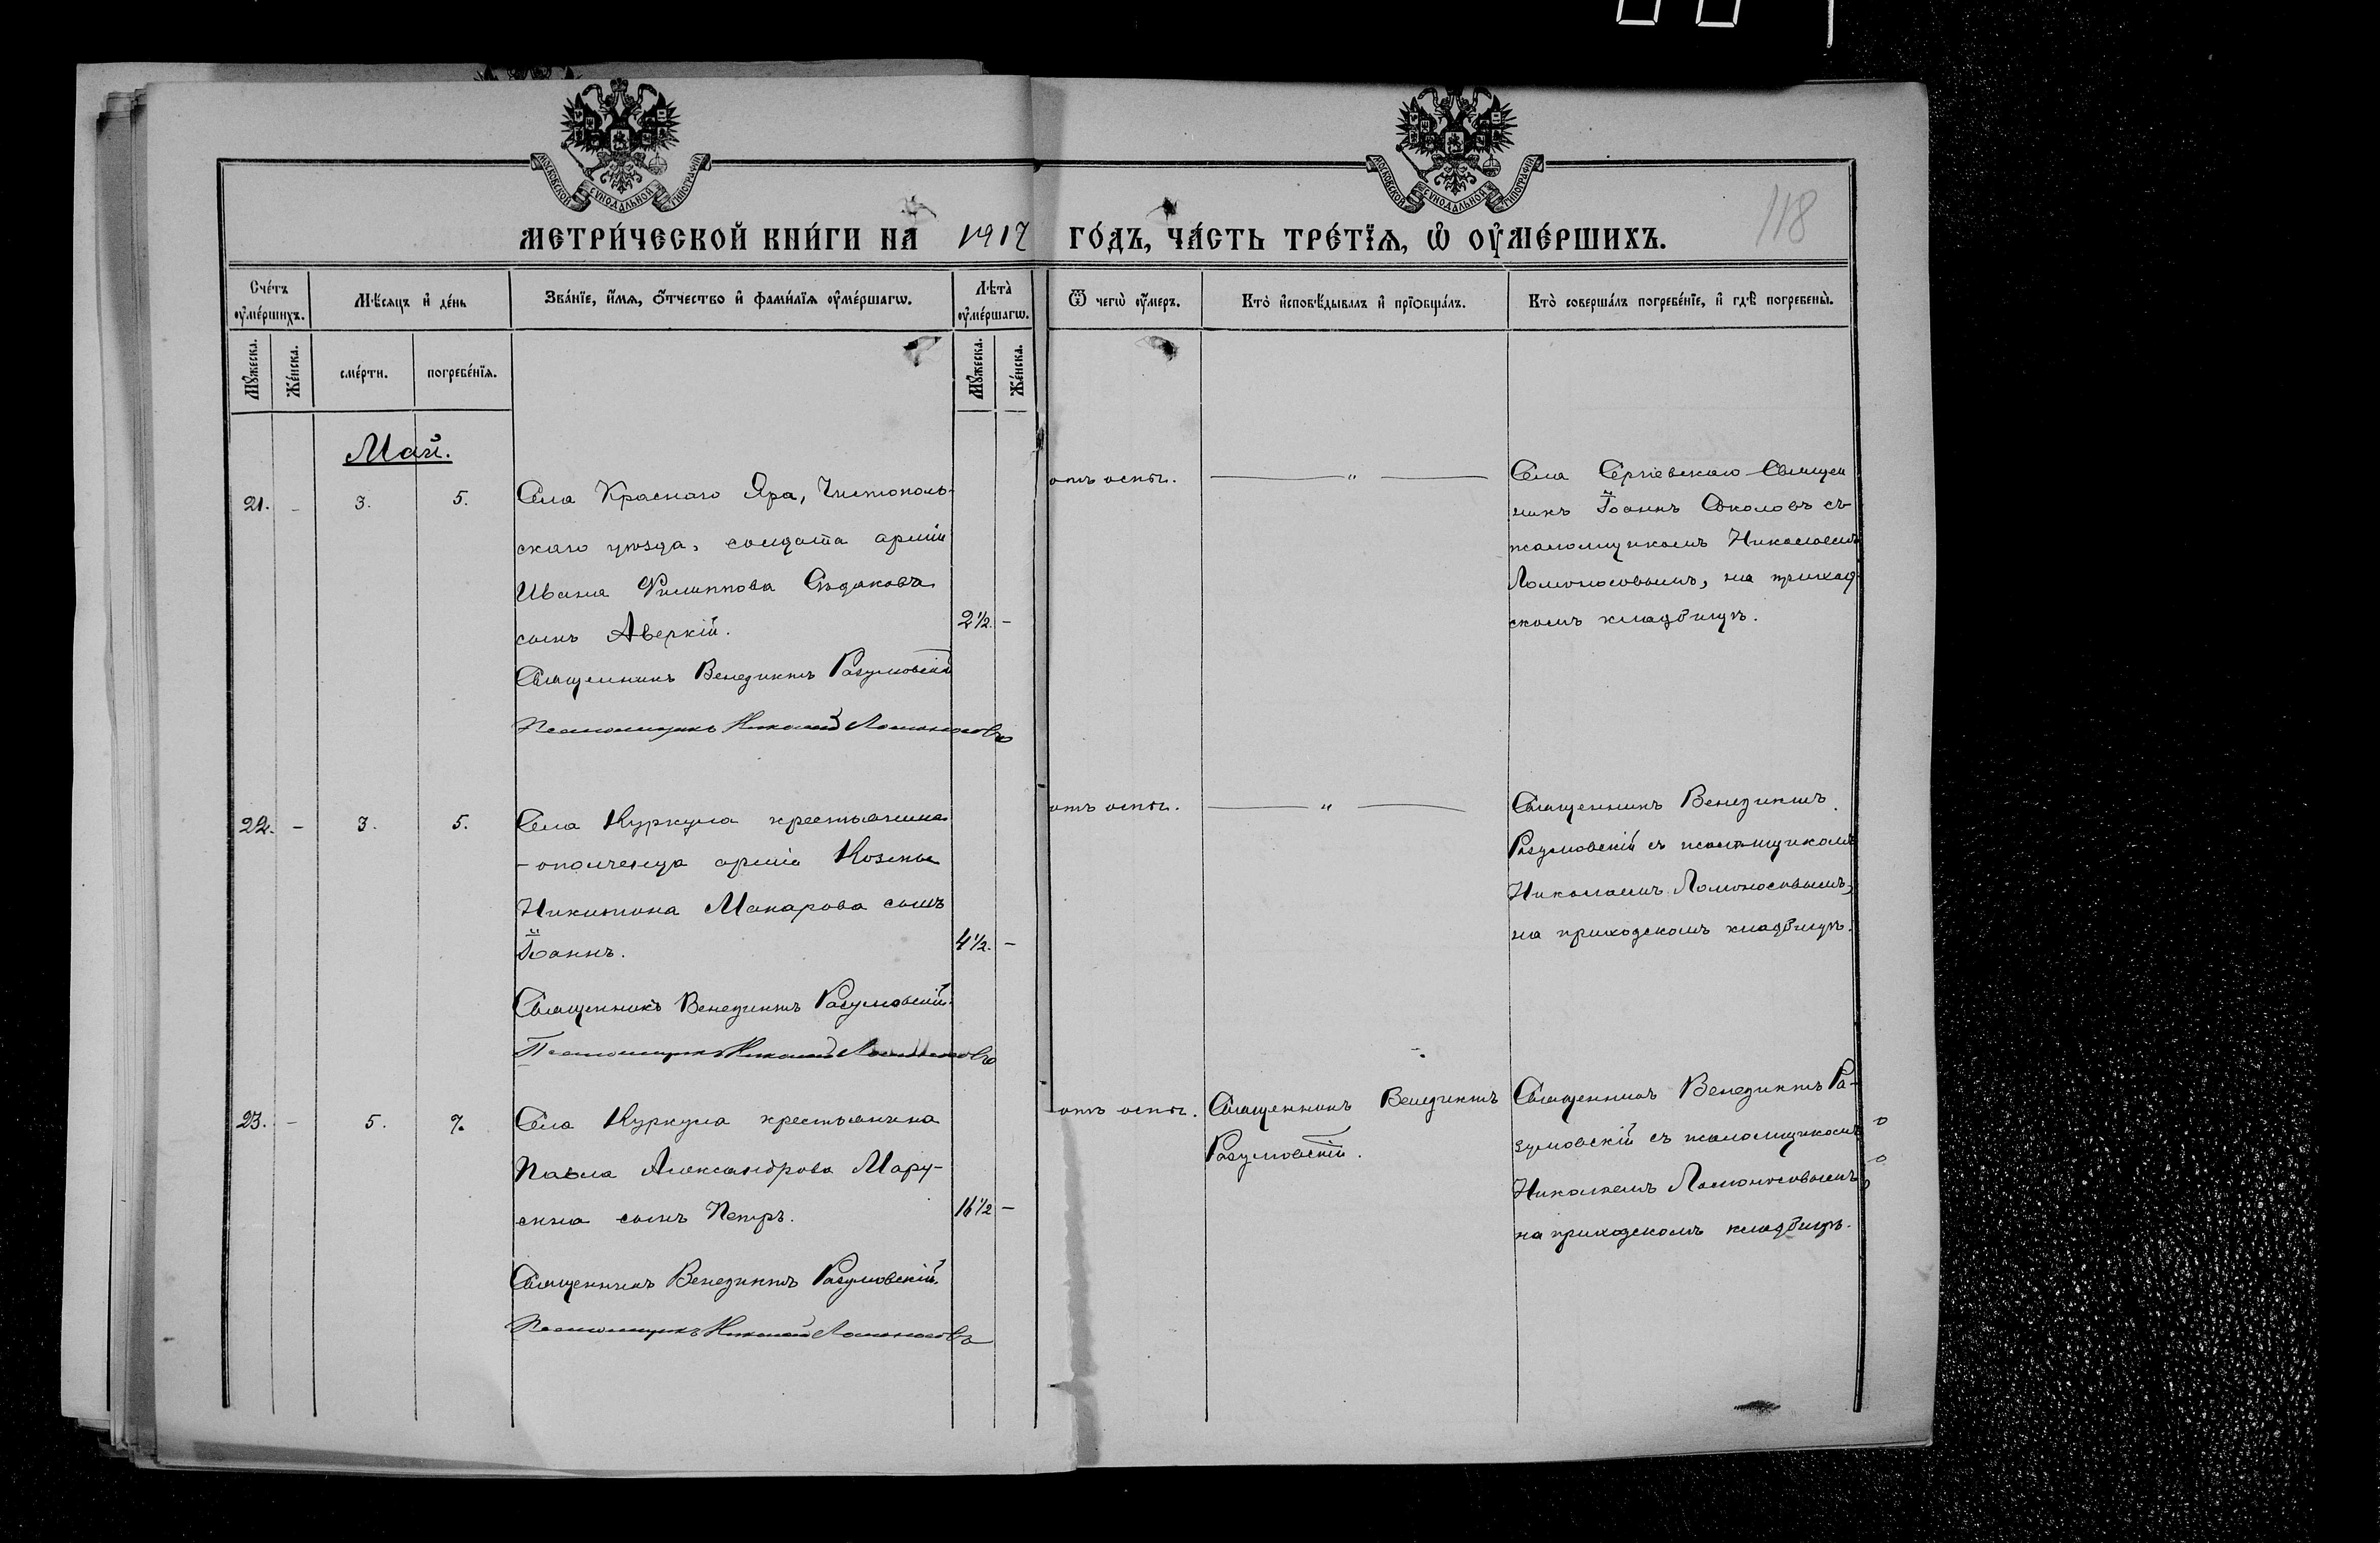 МОСКОВСКОЙ СѴНОДАЛЬНОЙ ТИПОГРАФІИ
МОСКОВСКОЙ СѴНОДАЛЬНОЙ ТИПОГРАФІИ
МЕТРИ́ЧЕСКОЙ КНИ́ГИ НА̀ 1917 ГО́ДЪ, ЧА́СТЬ ТРЕ́ТЇѦ, Ѡ҆ ОУ҆МЕ́РШИХЪ.
118
Сче́тъ оу҆ме́ршихъ.
Мѣ́сяцъ и҆ де́нь
Зва́нїе, и҆́мѧ, ѻ҆́тчество и҆ фами́лїѧ оу҆ме́ршагѡ.
Лѣта̀ оу҆ме́ршагѡ.
Ѿ чегѡ̀ оу҆́меръ.
Кто̀ и҆сповѣ́дывалъ и҆ прїѻбща́лъ.
Кто̀ соверша́лъ погребе́нїе, и҆ гдѣ̀ погребены̀.
Мꙋ́жеска.
Же́нска.
сме́рти.
погребе́нїѧ.
Мꙋ́жеска.
Же́нска.
Май.
21. - 3. 5. Села Краснаго Яра, Чистополь-
скаго уѣзда, солдата арміи
Ивана Филиппова Сѣдакова
сынъ Аверкій. 2½. -
Священникъ Венедиктъ Разумовскій
Псаломщикъ Николай Ломоносовъ
отъ оспы. — " —
Села Сергіевскаго Священ
никъ Іоаннъ Соколовъ съ
псаломщикомъ Николаемъ
Ломоносовымъ, на приход
скомъ кладбищѣ.
22. - 3. 5. Села Куркула крестьянина
- ополченца арміи Козьмы
Никитина Макарова сынъ
Іоаннъ. 4½. -
Священникъ Венедиктъ Разумовскій.
Псаломщикъ Николай Ломоносовъ
отъ оспы. — " —
Священникъ Венедиктъ
Разумовскій съ псаломщикомъ
Николаемъ Ломоносовымъ,
на приходскомъ кладбищѣ.
23. - 5. 7. Села Куркула крестьянина
Павла Александрова Мару-
сина сынъ Петръ. 16½ -
Священникъ Венедиктъ Разумовскій.
Псаломщикъ Николай Ломоносовъ
отъ оспы.
Священникъ Венедиктъ
Разумовскій.
Священникъ Венедиктъ Ра-
зумовскій съ псаломщикомъ
Николаемъ Ломоносовымъ
на приходскомъ кладбищѣ.